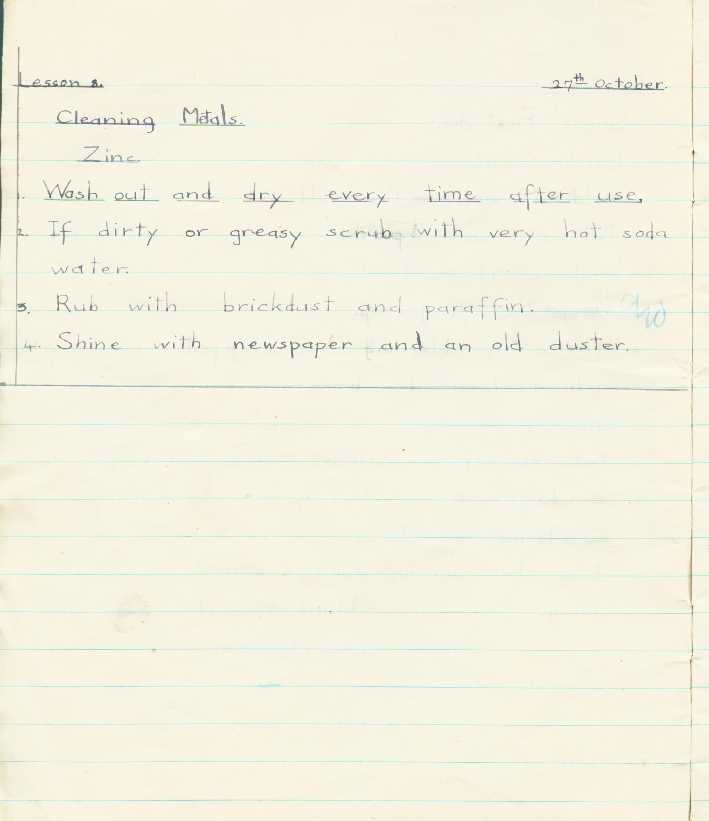 Lesson 8. 27th October.
Cleaning Metals.
Zinc.
1. Wash out and dry every time after use.
2. If dirty or greasy scrub with very hot soda
water.
3. Rub with brickdust and paraffin.
4. Shine with newspaper and an old duster.